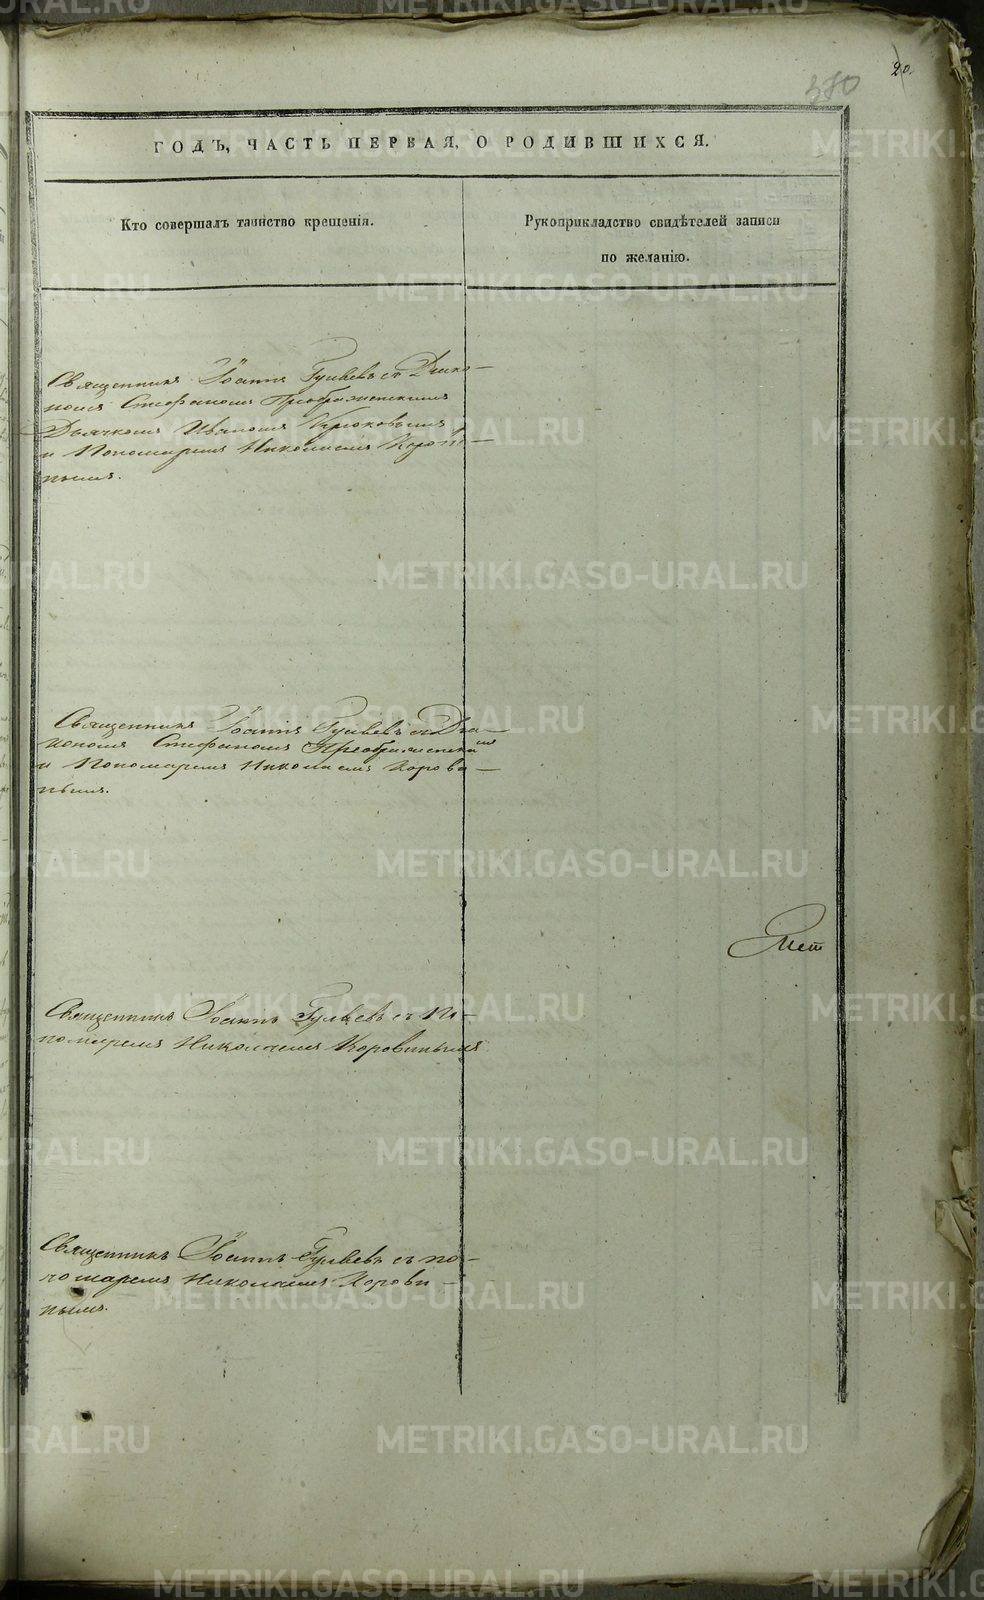 20.
380
ГОДЪ, ЧАСТЬ ПЕРВАЯ, О РОДИВШИХСЯ.
Кто совершалъ таинство крещенія.
Рукоприкладство свидѣтелей записи
по желанію.
Священникъ Іоаннъ Гуляевъ съ Діако-
номъ Стефаномъ Преображенскимъ
Дьячкомъ Иваномъ Крюковымъ
и Пономаремъ Николаемъ Корови-
нымъ.
Священникъ Іоаннъ Гуляевъ съ Діа-
кономъ Стефаномъ Преображенскимъ
и Пономаремъ Николаемъ Корови-
нымъ.
Священникъ Іоаннъ Гуляевъ съ По-
номаремъ Николаемъ Коровинымъ
Священникъ Іоаннъ Гуляевъ съ по-
номаремъ Николаемъ Корови-
нымъ.
METRIKI.GASO-URAL.RU